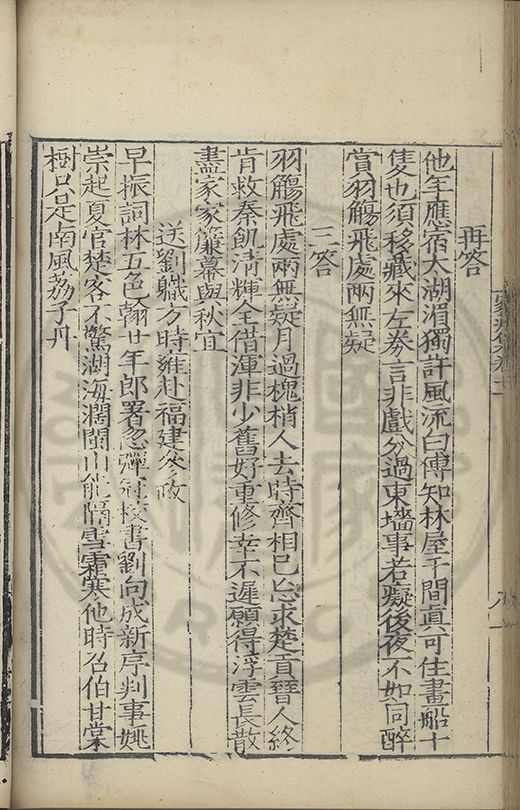 再答
他年應宿太湖湄獨許風流白傅知林屋千間真可住畫船十
隻也須移藏來左券言非戲分過東墻事若癡後夜不如同醉
賞羽觴飛處兩無疑
三答
羽觴飛處兩無疑月過槐梢人去時齊相已忘求楚貢晉人終
肯救秦飢清輝全借渾非少舊好重修幸不遲願得浮雲長散
盡家家簾幕與秋宜
送劉職方時雍赴福建叅政
早振詞林五色翰廿年郎署忽彈冠校書劉向成新序判事姚
崇起夏官楚客不驚湖海濶閩山能隔雪霜寒他時召伯甘棠
樹只是南風荔子丹